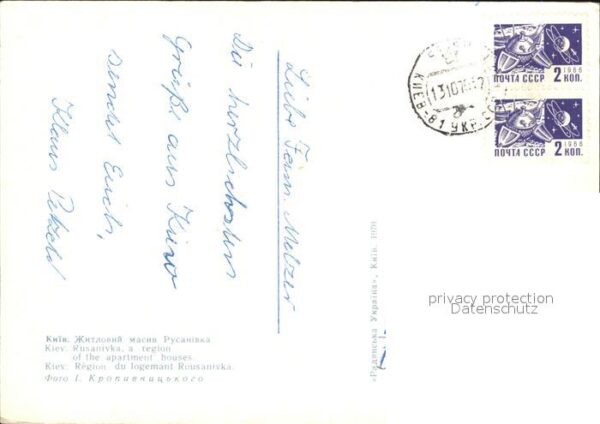 Liebe Fam. Metzer
Die herzlichsten
Grüße aus Kiew
sendet Euch,
Klaus
ПОЧТА СССР 1966 2 КОП.
ПОЧТА СССР 1966 2 КОП.
КИЕВ-81 УКР.
«Радянська Україна», Київ. 1970
privacy protection
Datenschutz
Київ. Житловий масив Русанівка
Kiev. Rusanivka, a region
of the apartment houses.
Kiev. Région du logemant Rousanivka.
Фото І. Кропивницького